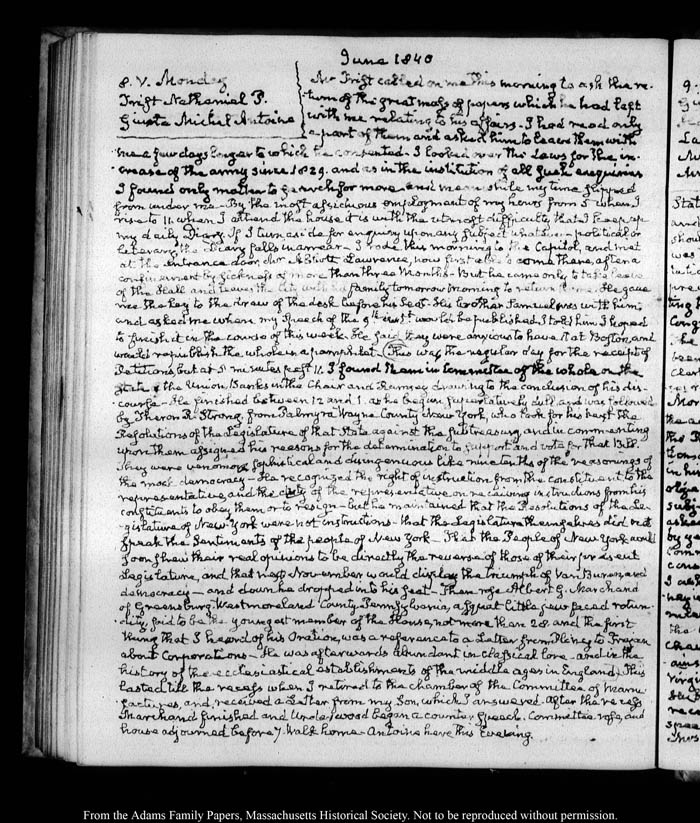 June 1840
8. V. Monday
Trist Nathaniel P.
Giusta Michel Antoine
Mr Trist called on me this morning to ask the re-
turn of the great mass of papers which he had left
with me relating to his affairs. I had read only
a part of them and asked him to leave them with
me a few days longer to which he consented. I looked over the Laws for the in-
crease of the army since 1829. and as in the institution of all such enquiries
I found only matter to search for more and meanwhile my time slipped
from under me. By the most assiduous employment of my hours from 5 when I
rise to 11 when I attend the house, it is with the utmost difficulty that I keep up
my daily Diary. If I turn aside for enquiry upon any subject whatever – political or
literary the diary falls in arrear – I rode this morning to the Capitol, and met
at the entrance door, Mr Abbott Lawrence, now first able to come there, after a
confinement by sickness of more than three Months – But he came only to take leave
of the Hall and leaves the City with his family tomorrow morning to return home. He gave
me the key to the draw of the desk before his seat. His brother Samuel was with him,
and asked me when my speech of the 9th inst. would be published. I told him I hoped
to finish it in the course of this week. He said they were anxious to have it at Boston, and
would republish the whole in a pamphlet. This was the regular day for the receipt of
Petitions, but at 5 minutes past 11 I found them in Committee of the whole on the
State of the Union, Banks in the Chair and Ramsey drawing to the conclusion of his dis-
course – He finished between 12 and 1. as he began, superlatively dull and was followed
by Theron R. Strong, from Palmyra Wayne County New York, who took for his text the
Resolutions of the Legislature of that State against the sub treasury, and in commenting
upon them assigned his reasons for the determination to support and vote for that Bill.
They were venomous, sophistical and disingenuous like nine tenths of the reasonings of
the mock democracy – He recognized the right of instruction from the constituent to the
representative, and the duty of the representative on receiving instructions from his
constituents to obey them or to resign – but he maintained that the Resolutions of the Le-
gislature of New-York were not instructions – that the Legislature themselves did not
speak the sentiments of the people of New York – That the People of New York would
soon shew their real opinions to be directly the reverse of those of their present
Legislature, and that next November would display the triumph of Van Buren, and
democracy – and down he dropped into his seat – Then rose Albert G. Marchand
of Greensburg, Westmoreland County Pennsylvania, a squat little faced rotun-
dity, said to be the youngest member of the House, not more than 28. and the first
thing that I heard of his Oration, was a reference to a Letter from Pliny to Trajan
about Corporations – He was afterwards abundant in classical lore – and in the
history of the ecclesiastical establishments of the middle ages in England. This
lasted till the recess when I retired to the chamber of the Committee of Manu-
factures, and received a Letter from my Son, which I answered. After the recess
Marchand finished and Underwood began a counter speech. Committee rose, and
house adjourned before 7. Walk home – Antoine here this Evening.
From the Adams Family Papers, Massachusetts Historical Society. Not to be reproduced without permission.